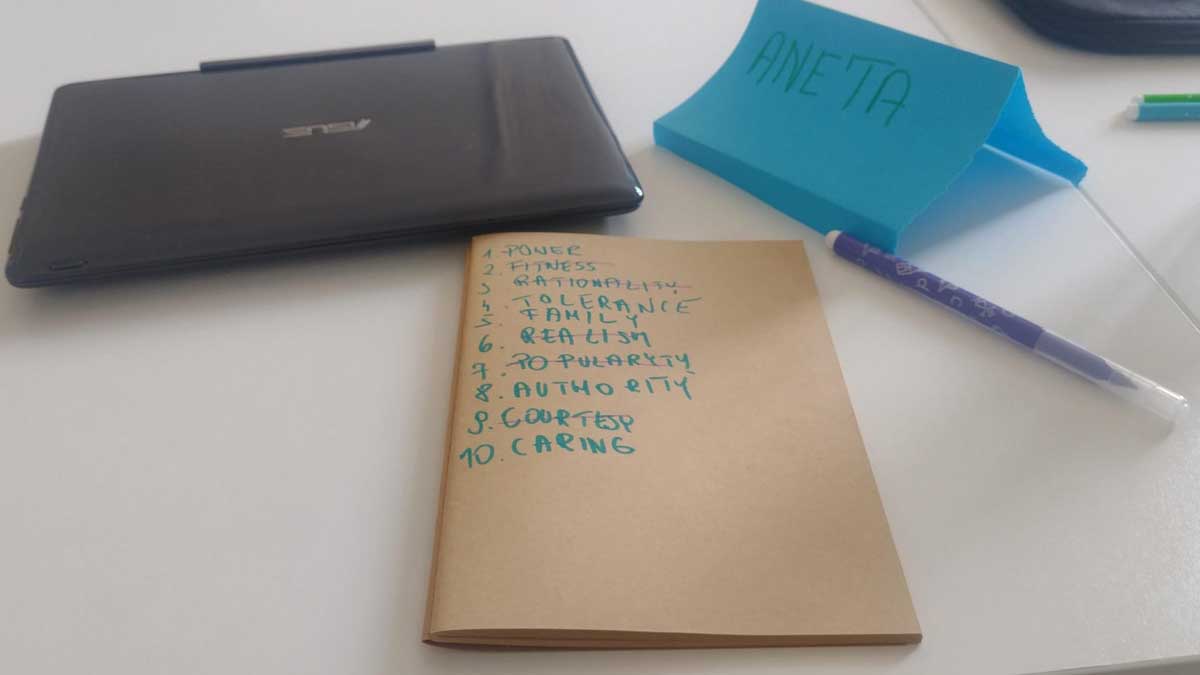 ASUS
ANETA
1. POWER
2. FITNESS
3 RATIONALITY
4. TOLERANCE
5. FAMILY
6. REALISM
7. POPULARYTY
8. AUTHORITY
9. COURTESY
10. CARING